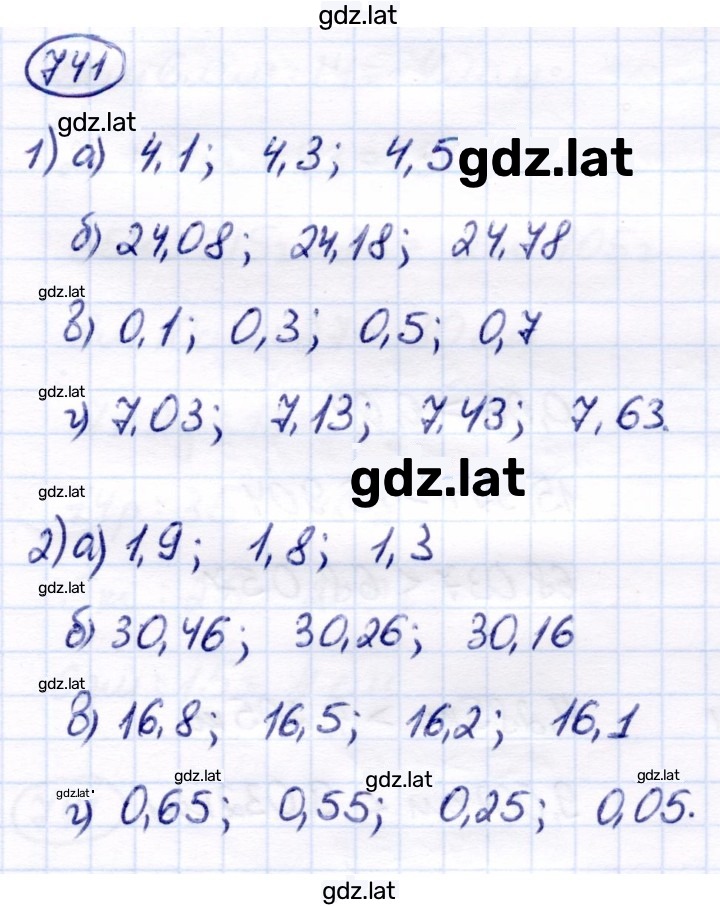 gdz.lat
741
gdz.lat
1) а) 4,1; 4,3; 4,5 gdz.lat
б) 24,08; 24,18; 24,78
gdz.lat
в) 0,1; 0,3; 0,5; 0,7
gdz.lat
г) 7,03; 7,13; 7,43; 7,63.
gdz.lat
gdz.lat
2) а) 1,9; 1,8; 1,3
gdz.lat
б) 30,46; 30,26; 30,16
gdz.lat
в) 16,8; 16,5; 16,2; 16,1
gdz.lat gdz.lat gdz.lat
gdz.lat
г) 0,65; 0,55; 0,25; 0,05.
gdz.lat